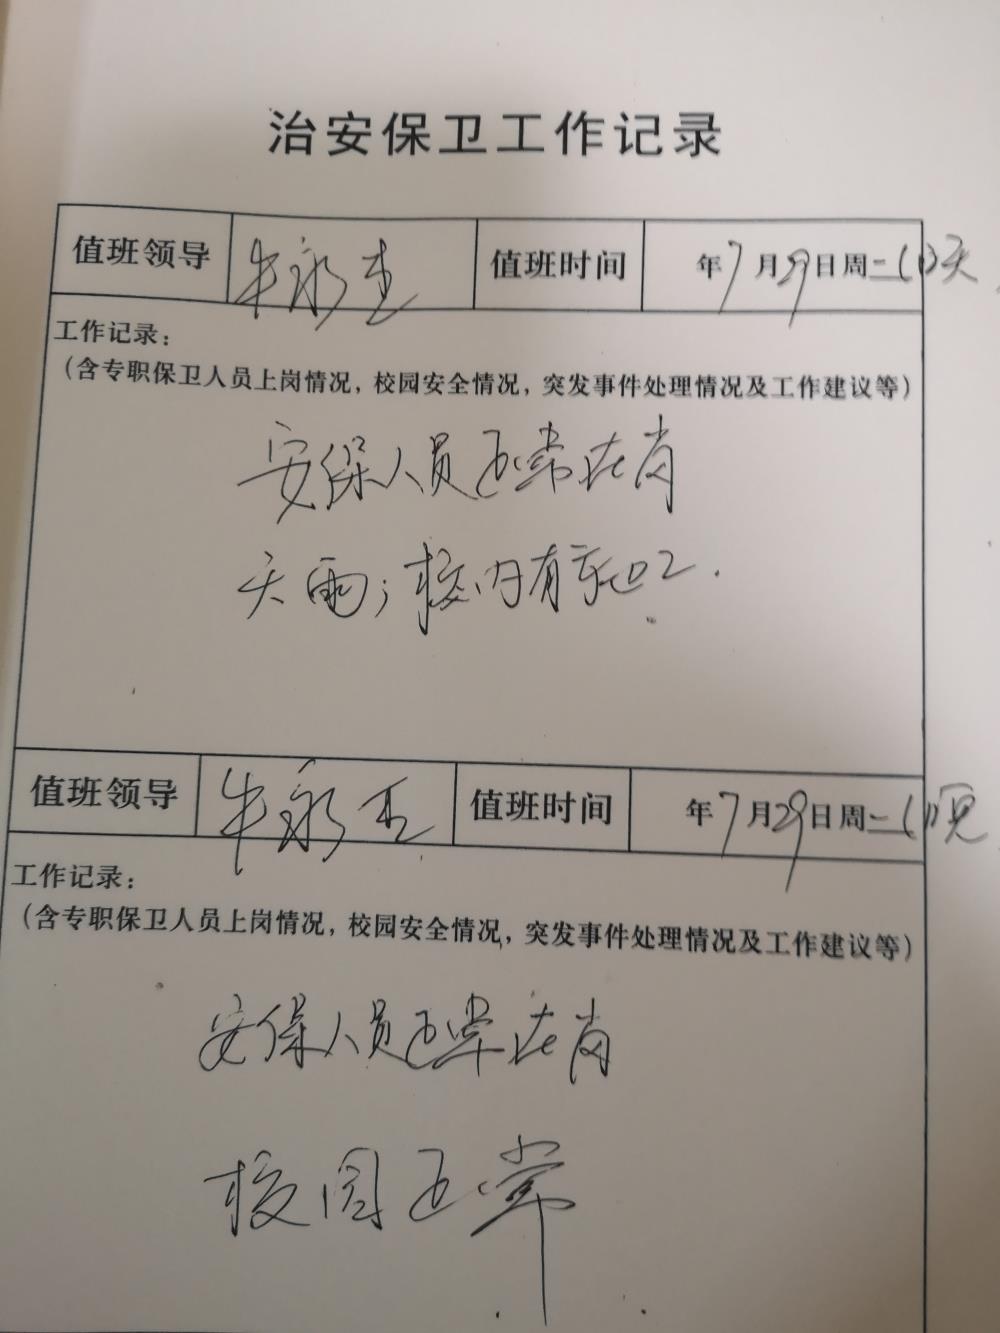 治安保卫工作记录
值班领导 牛永杰 值班时间 年7月29日周二(白天
工作记录：
（含专职保卫人员上岗情况，校园安全情况，突发事件处理情况及工作建议等）
安保人员正常在岗
天雨；校内有施工．
值班领导 牛永杰 值班时间 年7月29日周二(晚
工作记录：
（含专职保卫人员上岗情况，校园安全情况，突发事件处理情况及工作建议等）
安保人员正常在岗
校园正常